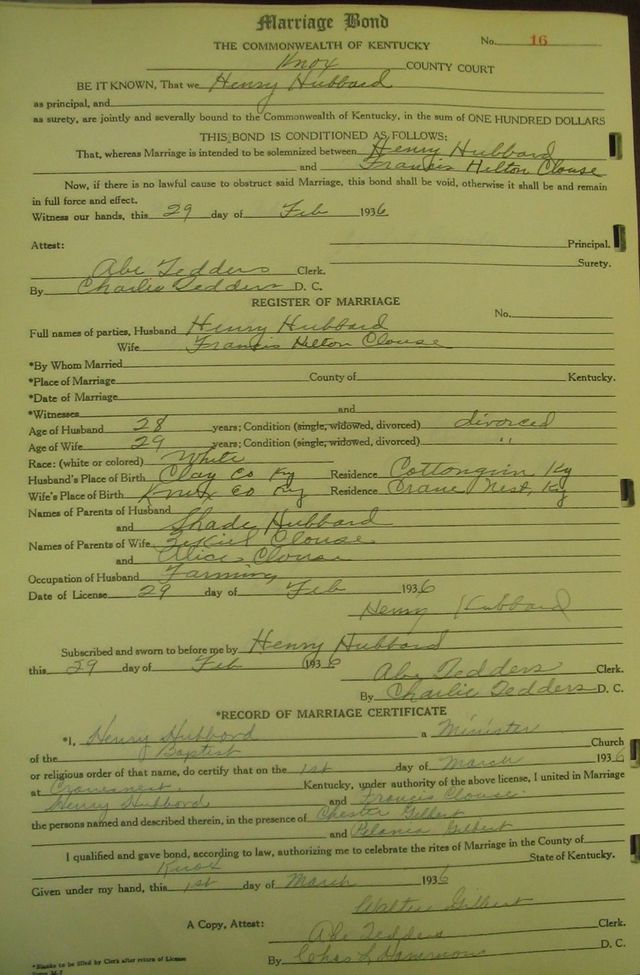 Marriage Bond
THE COMMONWEALTH OF KENTUCKY No. 16
Knox COUNTY COURT
BE IT KNOWN, That we Henry Hubbard
as principal, and
as surety, are jointly and severally bound to the Commonwealth of Kentucky, in the sum of ONE HUNDRED DOLLARS
THIS BOND IS CONDITIONED AS FOLLOWS:
That, whereas Marriage is intended to be solemnized between Henry Hubbard
and Francis Helton Clouse
Now, if there is no lawful cause to obstruct said Marriage, this bond shall be void, otherwise it shall be and remain
in full force and effect.
Witness our hands, this 29 day of Feb 1936
Attest: Principal.
Abe Tedders Clerk. Surety.
By Charlie Tedders D. C.
REGISTER OF MARRIAGE
No.
Full names of parties, Husband Henry Hubbard
Wife Francis Helton Clouse
*By Whom Married
*Place of Marriage County of Kentucky.
*Date of Marriage
*Witnesses and
Age of Husband 28 years; Condition (single, widowed, divorced) divorced
Age of Wife 29 years; Condition (single, widowed, divorced) "
Race: (white or colored) White
Husband's Place of Birth Clay Co Ky Residence Cottongin Ky
Wife's Place of Birth Knox Co Ky Residence Crane Nest, Ky
Names of Parents of Husband
and Shade Hubbard
Names of Parents of Wife Zekiel Clouse
and Alice Clouse
Occupation of Husband Farming
Date of License 29 day of Feb 1936
Henry Hubbard
Subscribed and sworn to before me by Henry Hubbard
this 29 day of Feb 1936
Abe Tedders Clerk.
By Charlie Tedders D. C.
*RECORD OF MARRIAGE CERTIFICATE
*I, Henry Hubbord a Minister
of the Baptist Church
or religious order of that name, do certify that on the 1st day of March 1936
at Cranesnest, Kentucky, under authority of the above license, I united in Marriage
Henry Hubbord and Francis Clouse
the persons named and described therein, in the presence of Chester Gilbert
and Gilbert
I qualified and gave bond, according to law, authorizing me to celebrate the rites of Marriage in the County of
Knox State of Kentucky.
Given under my hand, this 1st day of March 1936
Walter Gilbert
A Copy, Attest: Abe Tedders Clerk.
By Chas D. C.
*Blanks to be filled by Clerk after return of License